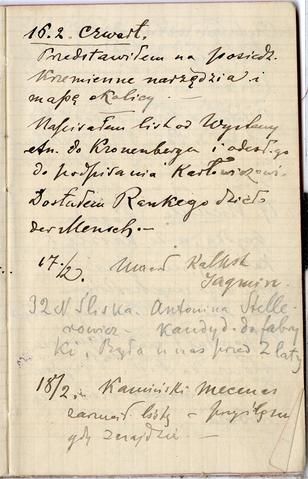 16.2. Czwart.
Przedstawiłem na posiedz.
Krzemienne narzędzia i
mapę okolicy —
Napisałem list od Wystawy
etn. do Kronenberga i odesł. go
do podpisania Karłowiczowi
Dostałem Rankego dzieło
der Mensch. —
17./2. Umarł Kalikst
Jagmin.
32 N Śliska. Antonina Stelle
rowicz — Kandyd. do fabry
ki, Była u nas przed 2 laty
18/2. Kamiński mecenas
listy — przyślę
gdy znajdzie —